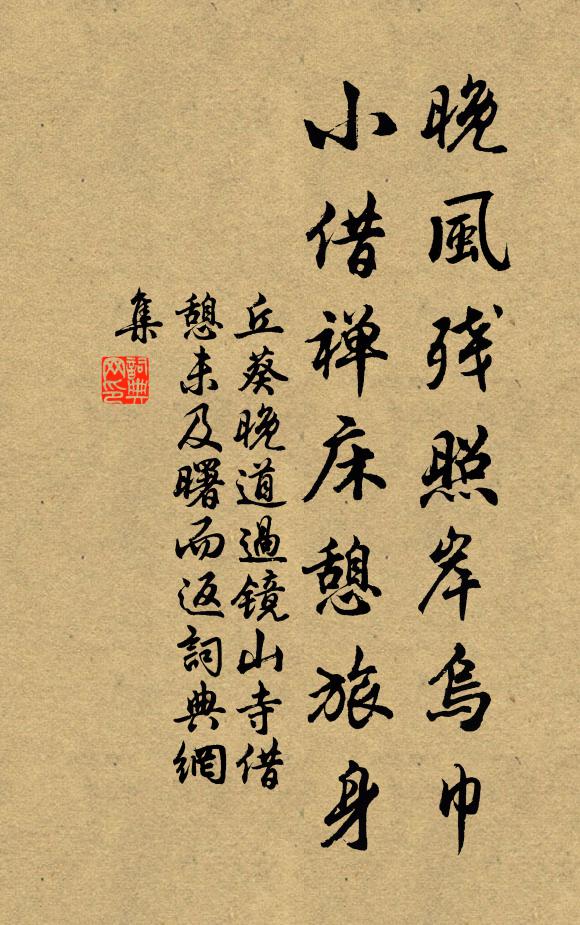 晚風残照岸烏巾
小借禅床憩旅身
丘葵晚道過鏡山寺借
憩未及曙而返詞典網
集
詞典網印